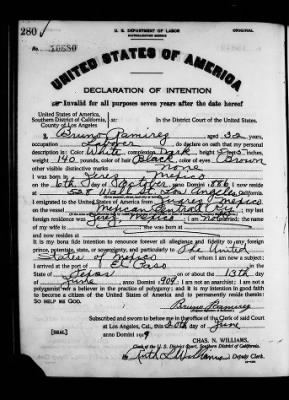 280
U. S. DEPARTMENT OF LABOR
NATURALIZATION SERVICE
ORIGINAL
No. 10580
UNITED STATES OF AMERICA
DECLARATION OF INTENTION
Invalid for all purposes seven years after the date hereof
United States of America,
Southern District of California, ss:
County of Los Angeles
In the District Court of the United States.
I, Bruno Ramirez, aged 32 years,
occupation Laborer, do declare on oath that my personal
description is: Color White, complexion Dark, height 5 feet inches,
weight 140 pounds, color of hair Black, color of eyes Brown
other visible distinctive marks none
I was born in Jerez Mexico
on the 6th day of October, anno Domini 1886; I now reside
at 528 Wall St Los Angeles, California.
I emigrated to the United States of America from Juarez Mexico
on the vessel Mexican Central Ry; my last
foreign residence was Jerez Mexico; I am not married; the name
of my wife is ; she was born at
and now resides at
It is my bona fide intention to renounce forever all allegiance and fidelity to any foreign
prince, potentate, state, or sovereignty, and particularly to The United
States of Mexico, of whom I am now a subject;
I arrived at the port of El Paso, in the
State of Texas, on or about the 13th day
of June, anno Domini 1909; I am not an anarchist; I am not a
polygamist nor a believer in the practice of polygamy; and it is my intention in good faith
to become a citizen of the United States of America and to permanently reside therein:
SO HELP ME GOD.
Bruno Ramirez
Subscribed and sworn to before me in the office of the Clerk of said Court
at Los Angeles, Cal., this 20th day of June
anno Domini 1919
[SEAL]
CHAS. N. WILLIAMS,
Clerk of the U. S. District Court, Southern District of California.
By Ruth L Williams, Deputy Clerk.